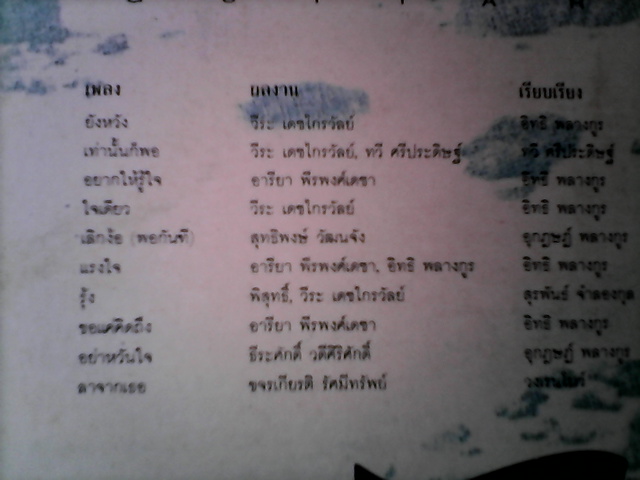 เพลง ผลงาน เรียบเรียง
ยังหวัง วีระ เดชไกรวัลย์ อิทธิ พลางกูร
เท่านั้นก็พอ วีระ เดชไกรวัลย์, ทวี ศรีประดิษฐ์ ทวี ศรีประดิษฐ์
อยากให้รู้ใจ อารียา พีรพงศ์เดชา อิทธิ พลางกูร
ใจเดียว วีระ เดชไกรวัลย์ อิทธิ พลางกูร
เลิกง้อ (พอกันที) สุทธิพงษ์ วัฒนจัง อุกฤษฎ์ พลางกูร
แรงใจ อารียา พีรพงศ์เดชา, อิทธิ พลางกูร อิทธิ พลางกูร
รุ้ง พิสุทธิ์, วีระ เดชไกรวัลย์ สุรพันธ์ จำลองกุล
ขอแค่คิดถึง อารียา พีรพงศ์เดชา อิทธิ พลางกูร
อย่าหวั่นใจ ธีระศักดิ์ วดีศิริศักดิ์ อุกฤษฎ์ พลางกูร
ลาจากเธอ ขจรเกียรติ รัศมีทรัพย์